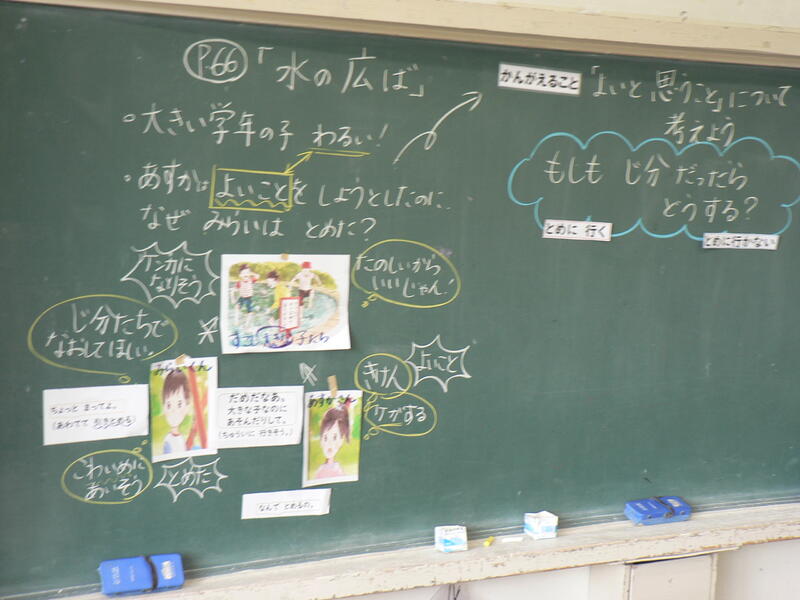 P.66 「水の広ば」
・大きい学年の子 わるい!
・あすかは よいことを しようとしたのに
なぜ みらいは とめた?
ケンカに
なりそう
たのしいから
いいじゃん!
子たち
じ分たちで
なおしてほしい。
みらいくん
ちょっと まってよ。
(あわてて 引きとめる)
だめだなあ。
大きな子なのに
あそんだりして。
(ちゅういに 行きそう。)
あすかさん
きけん
よいこと
ケガする
こわいめに
あいそう
とめた
なんで とめるの。
かんがえること
「よいと思うこと」について
考えよう
もしも じ分だったら
どうする?
とめに 行く
とめに行かない